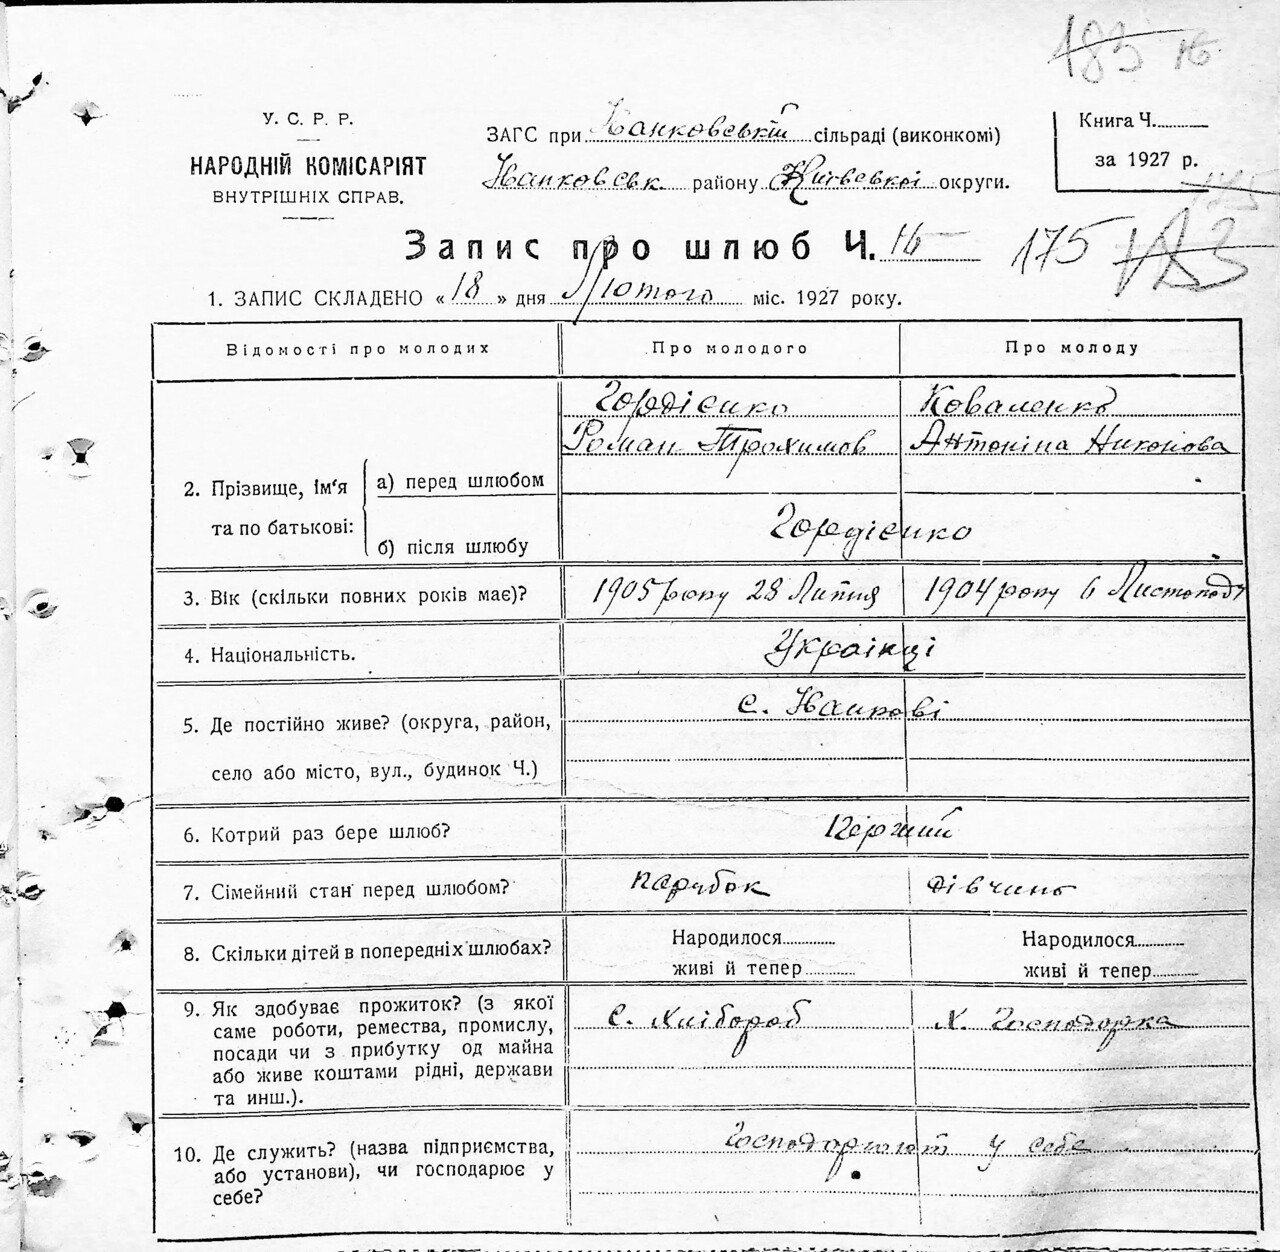 183 16
У. С. Р. Р.
НАРОДНІЙ КОМІСАРІЯТ
ВНУТРІШНІХ СПРАВ.
ЗАГС при Іванковській сільраді (виконкомі)
Іванковськ. району Київської округи.
Книга Ч.
за 1927 р.
Запис про шлюб Ч. 16
175 183
1. ЗАПИС СКЛАДЕНО «18» дня Лютого міс. 1927 року.
Відомості про молодих Про молодого Про молоду
Гордієнко Коваленко
Роман Трохимов Антоніна Никонова
2. Прізвище, ім'я та по батькові: а) перед шлюбом
б) після шлюбу Гордієнко
3. Вік (скільки повних років має)? 1905 року 28 Липня 1904 року 6 Листопада
4. Національність. Українці
5. Де постійно живе? (округа, район, с. Іванкові
село або місто, вул., будинок Ч.)
6. Котрий раз бере шлюб? Перший
7. Сімейний стан перед шлюбом? парубок дівчина
8. Скільки дітей в попередніх шлюбах? Народилося Народилося
живі й тепер живі й тепер
9. Як здобуває прожиток? (з якої с. хлібороб х. господарка
саме роботи, ремества, промислу,
посади чи з прибутку од майна
або живе коштами рідні, держави
та инш.).
10. Де служить? (назва підприємства, Господарюют у себе
або установи), чи господарює у
себе?